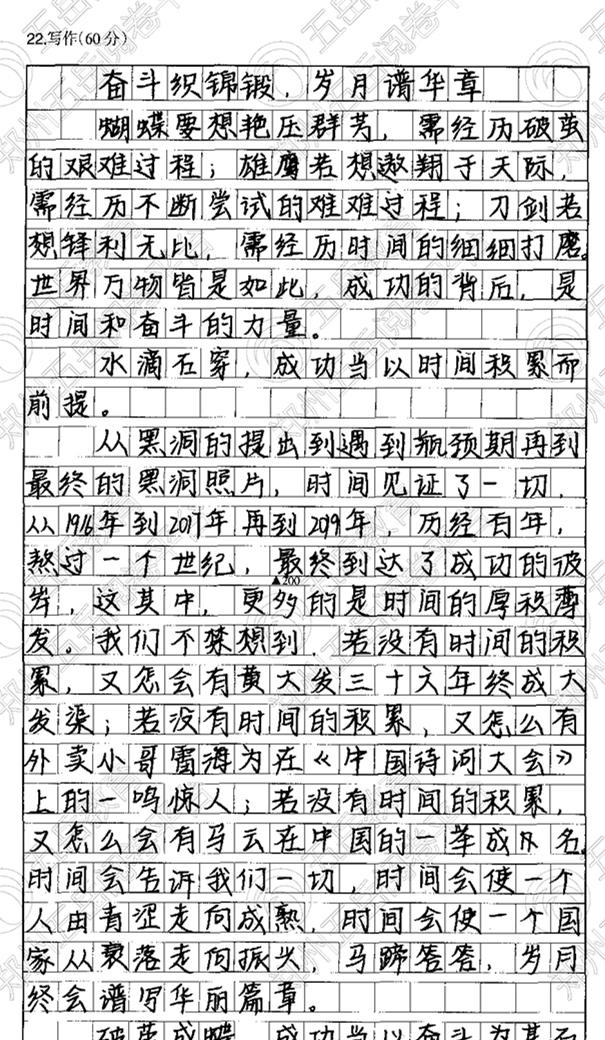 22.写作(60分)
奋斗织锦锻,岁月谱华章
蝴蝶要想艳压群芳,需经历破茧
的艰难过程;雄鹰若想遨翔于天际,
需经历不断尝试的难难过程;刀剑若
想锋利无比,需经历时间的细细打磨。
世界万物皆是如此,成功的背后,是
时间和奋斗的力量。
水滴石穿,成功当以时间积累而
前提。
从黑洞的提出到遇到瓶预期再到
最终的黑洞照片,时间见证了一切,
从1916年到2017年再到2019年,历经百年,
熬过一个世纪,最终到达了成功的彼
▲200
岸,这其中,更多的是时间的厚积薄
发。我们不禁想到,若没有时间的积
累,又怎会有黄大发三十六年终成大
发渠;若没有时间的积累,又怎么有
外卖小哥雷海为在《中国诗词大会》
上的一鸣惊人;若没有时间的积累,
又怎么会有马云在中国的一举成名。
时间会告诉我们一切,时间会使一个
人由青涩走向成熟,时间会使一个国
家从衰落走向振兴,马蹄答答,岁月
终会谱写华丽篇章。
破茧成蝶,成功当以奋斗为基石
郑州五岳阅卷